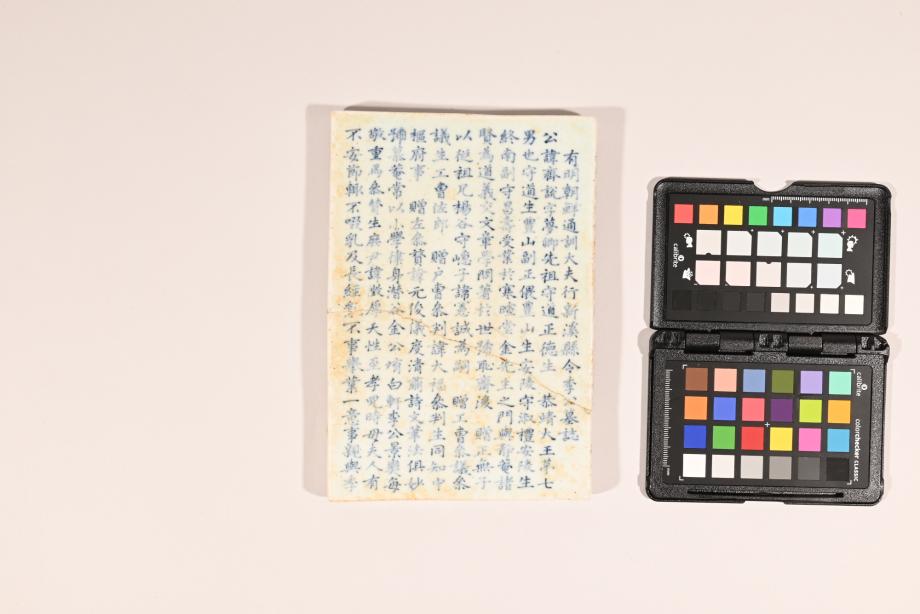 有明朝鮮通訓大夫行新溪縣令李墓誌
公諱齋說字夢卿先祖守道正德生 恭靖大王第七
男也守道生豊山副正偎豊山生安陵守淑禮安陵生
終南副守昌壽受業於寒暄堂金先生之門與靜菴諸
賢為道義交文章學問著於世號耻齋後 贈正無子
以從祖兄楊谷守子諱憲誠為嗣 贈工曹參議參
議生工曹佐郎 贈戶曹參判諱大福參判生同知中
樞府事 贈左參贊諱元俊儀度清朗詩文筆法俱妙
號慕菴常以小學律身潛谷金公堉白軒李公景奭每
敬重焉參贊生尹諱厚天性至孝兒時母夫人有
不安節輒不啜乳及長經不事擧業一意事親與季
calibrite
calibrite
colorchecker CLASSIC
mm